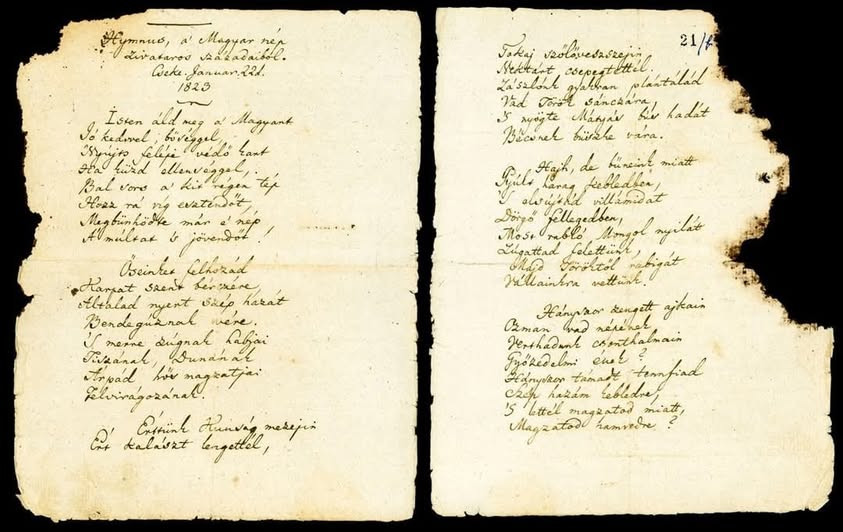 Hymnus, a' Magyar nép
zivataros századaiból.
Cseke, Januar. 22d.
1823
Isten áld meg a' Magyart
Jó kedvvel, bőséggel,
Nyújts feléje védő kart
Ha küzd ellenséggel,
Bal sors a' kit régen tép
Hozz rá víg esztendőt,
Megbűnhődte már e' nép
A' múltat 's jövendőt!
Őseinket felhozád
Kárpát szent bérczére,
Általad nyert szép hazát
Bendegúznak vére.
'S merre zúgnak habjai
Tiszának, Dunának
Árpád hős magzatjai
Felvirágozának.
Értünk Kunság mezején
Ért kalászt lengettél,
21/
Tokaj szőlővesszején
Nektárt csepegtettél.
Zászlónk gyakran plántálád
Vad Török sánczára,
'S nyögte Mátyás bús hadát
Bécsnek büszke vára.
Hajh, de bűneink miatt
Gyúlt harag kebledben,
'S elsújtád villámidat
Dörgő fellegedben,
Most rabló Mongol nyilát
Zúgattad felettünk,
Majd Töröktől rabigát
Vállainkra vettünk.
Hányszor zengett ajkain
Ozman vad népének
Vert hadunk csonthalmain
Győzedelmi ének?
Hányszor támadt tennfiad
Szép hazám kebledre,
'S lettél magzatod miatt,
Magzatod hamvedre?